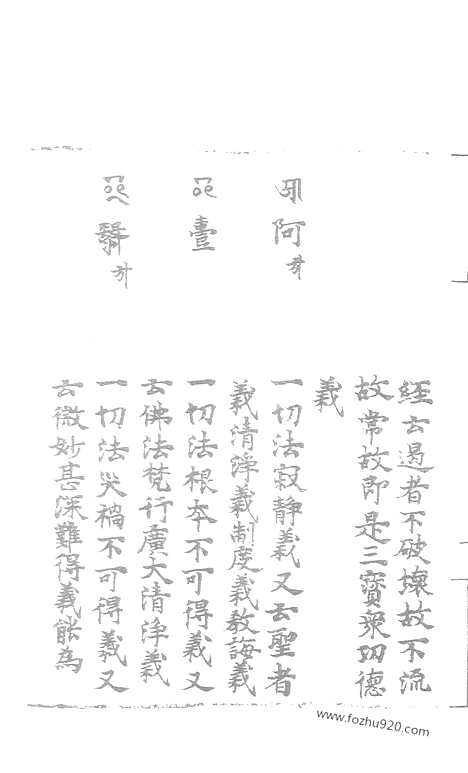 經云遏者不破壞故不流
故常故即是三寶衆功德
義
阿 一切法寂靜義又云聖者
義清淨義制度義教誨義
壹 一切法根夲不可得義又
云佛法梵行廣大清淨義
翳 一切法災禍不可得義又
云微妙甚深難得義能為
www.fozhu920.com